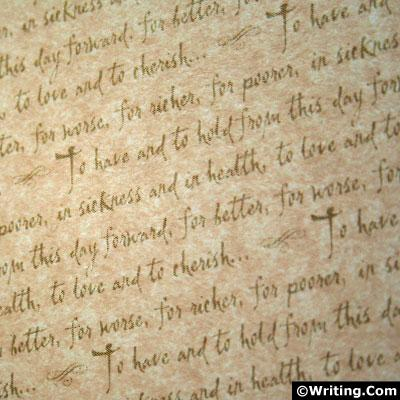 r, in sickness and
this day forward, for better, fo To have and
, to love and to cherish... in sickness
tter, for worse, for richer, for poorer, this day forw
To have and to hold from love and to
poorer, in sickness and in health, to worse, for
rom this day forward, for better, for To have
ealth, to love and to cherish... in si
better, for worse, for richer, for poorer, this day
To have and to hold from love a
sh... sickness and in health, to
©Writing.Com